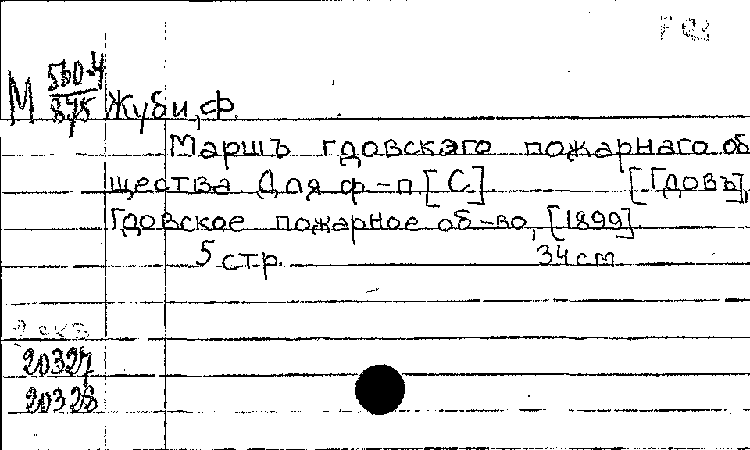 М 560-4
875
Жуби, Ф.
Маршъ гдовскаго пожарнаго об
щества Для ф-п. [С.] [Гдовъ],
Гдовское пожарное об-во, [1899].
5 стр. 34 cm
2 экз
20327
20328